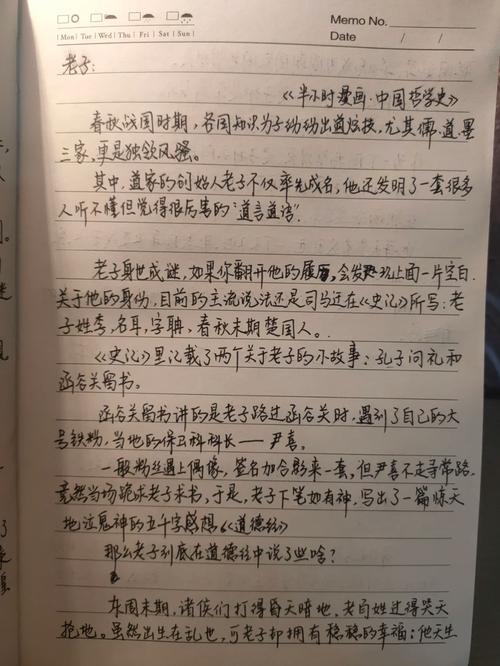 Memo No.
Mon Tue Wed Thu Fri Sat Sun
Date / /
老子:
《半小时漫画·中国哲学史》
春秋战国时期，各国知识分子动动出道炫技，尤其儒、道、墨
三家，更是独领风骚。
其中，道家的创始人老子不仅率先成名，他还发明了一套很多
人听不懂但觉得很厉害的"道言道语".
老子身世成谜，如果你翻开他的履历，会发现上面一片空白.
关于他的身份，目前的主流说法还是司马迁在《史记》所写：老
子姓李，名耳，字聃，春秋末期楚国人。
《史记》里记载了两个关于老子的小故事：孔子问礼和
函谷关留书。
函谷关留书讲的是老子路过函谷关时，遇到了自己的大
号铁粉，当地的保卫科科长——尹喜。
一般粉丝遇上偶像，签名加合影来一套，但尹喜不走寻常路，
竟然当场跪求老子求书，于是，老子下笔如有神，写出了一篇惊天
地泣鬼神的五千字感想《道德经》
那么老子到底在道德经中说了些啥？
东周末期，诸侯们打得昏天暗地，老百姓过得哭天
抢地。虽然出生在乱世，可老子却拥有稳稳的幸福：他天生